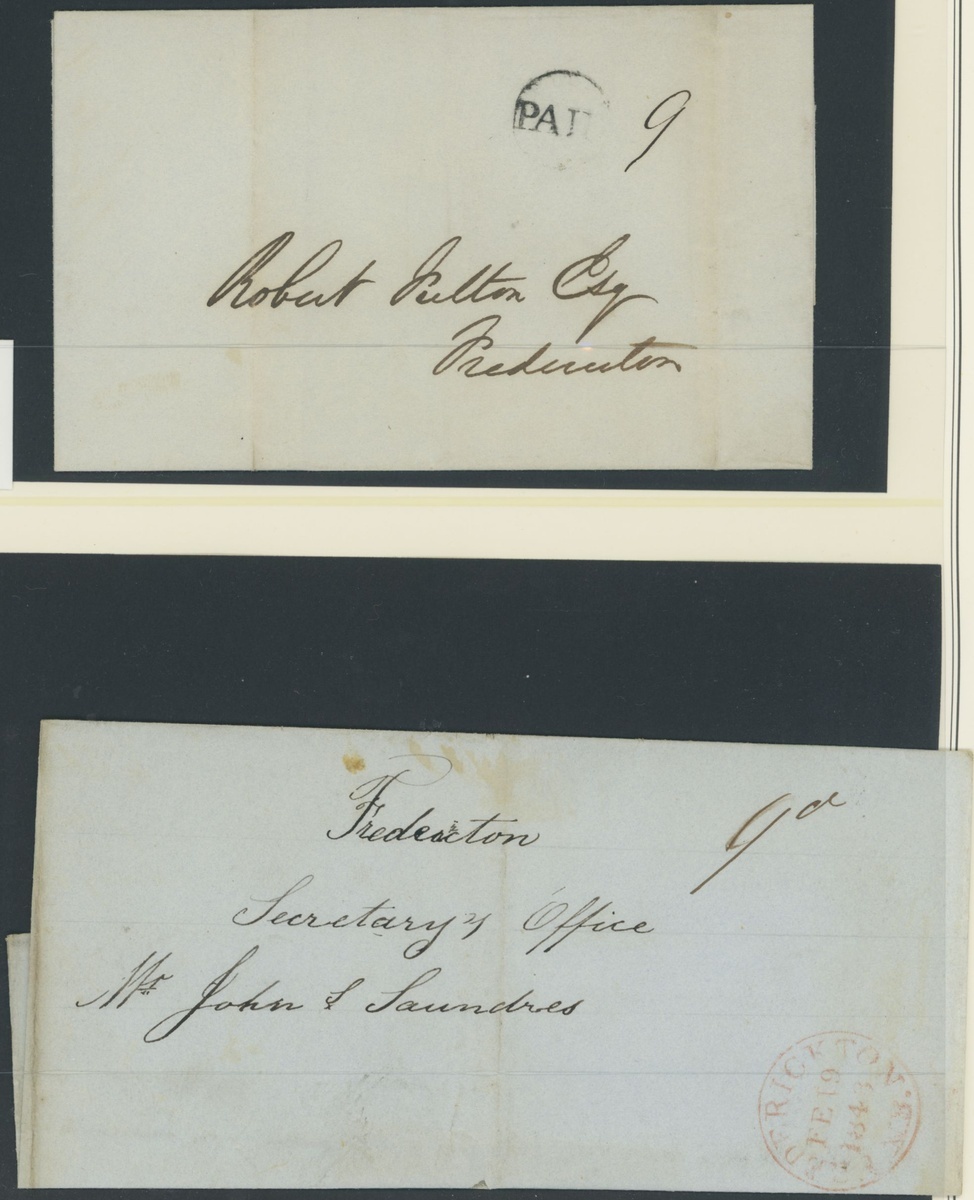 PAID 9
Robert Fulton Esq
Fredericton
Fredericton
9d
Secretary's Office
Mr John S Saundres
FREDERICKTON. N.B.
FE 19
1843